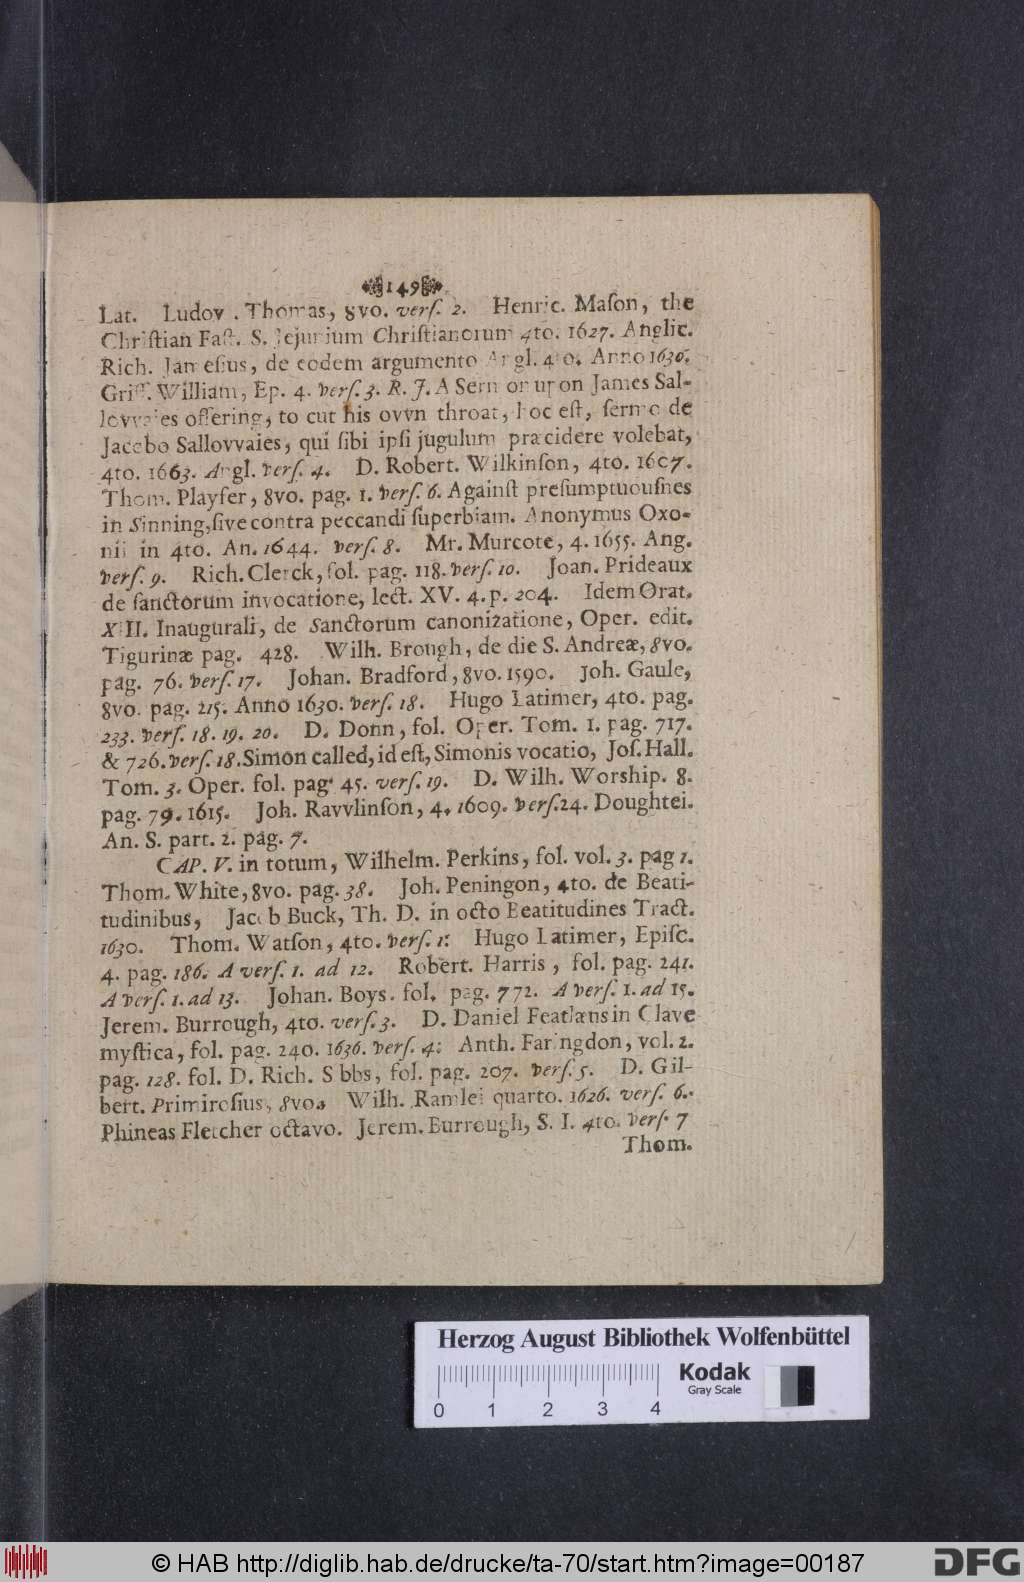 149
Lat. Ludov. Thomas, 8vo. verſ. 2. Henric. Maſon, the
Chriſtian Faſt. S. Jejunium Chriſtianorum 4to. 1627. Anglic.
Rich. Jameſius, de eodem argumento Angl. 4to. Anno 1630.
Griff. William, Ep. 4. verſ. 3. R. J. A Sermon upon James Sal-
lovvaies offering, to cut his ovvn throat, hoc eſt, ſermo de
Jacobo Sallovvaies, qui ſibi ipſi jugulum præcidere volebat,
4to. 1663. Angl. verſ. 4. D. Robert. Wilkinſon, 4to. 1607.
Thom. Playfer, 8vo. pag. 1. verſ. 6. Againſt preſumptuouſnes
in Sinning, ſive contra peccandi ſuperbiam. Anonymus Oxo-
nii in 4to. An. 1644. verſ. 8. Mr. Murcote, 4. 1655. Ang.
verſ. 9. Rich. Clerck, fol. pag. 118. verſ. 10. Joan. Prideaux
de ſanctorum invocatione, lect. XV. 4. p. 204. Idem Orat.
XIII. Inaugurali, de Sanctorum canonizatione, Oper. edit.
Tigurinæ pag. 428. Wilh. Brough, de die S. Andreæ, 8vo.
pag. 76. verſ. 17. Johan. Bradford, 8vo. 1590. Joh. Gaule,
8vo. pag. 215. Anno 1630. verſ. 18. Hugo Latimer, 4to. pag.
233. verſ. 18. 19. 20. D. Donn, fol. Oper. Tom. 1. pag. 717.
& 726. verſ. 18. Simon called, id eſt, Simonis vocatio, Joſ. Hall.
Tom. 3. Oper. fol. pag. 45. verſ. 19. D. Wilh. Worship. 8.
pag. 79. 1615. Joh. Ravvlinſon, 4. 1609. verſ. 24. Doughtei.
An. S. part. 2. pag. 7.
CAP. V. in totum, Wilhelm. Perkins, fol. vol. 3. pag 1.
Thom. White, 8vo. pag. 38. Joh. Peningon, 4to. de Beati-
tudinibus, Jacob Buck, Th. D. in octo Beatitudines Tract.
1630. Thom. Watſon, 4to. verſ. 1: Hugo Latimer, Epiſc.
4. pag. 186. A verſ. 1. ad 12. Robert. Harris, fol. pag. 241.
A verſ. 1. ad 13. Johan. Boys. fol. pag. 772. A verſ. 1. ad 15.
Jerem. Burrough, 4to. verſ. 3. D. Daniel Featlæus in Clave
myſtica, fol. pag. 240. 1636. verſ. 4: Anth. Faringdon, vol. 2.
pag. 128. fol. D. Rich. Sibbs, fol. pag. 207. verſ. 5. D. Gil-
bert. Primiroſius, 8vo. Wilh. Ramlei quarto. 1626. verſ. 6.
Phineas Fletcher octavo. Jerem. Burrough, S. I. 4to. verſ. 7
Thom.
Herzog August Bibliothek Wolfenbüttel
Kodak
Gray Scale
0 1 2 3 4
© HAB http://diglib.hab.de/drucke/ta-70/start.htm?image=00187
DFG